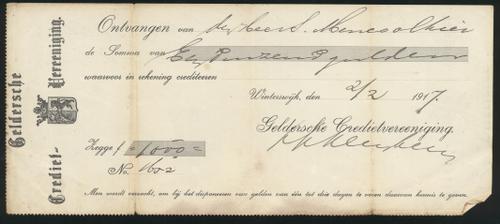 Geldersche
Crediet-
Vereeniging.
Ontvangen van den Heer S.
de Somma van Een Duizend gulden
waarvoor in rekening crediteeren
Winterswijk, den 2/2 1917.
Geldersche Credietvereeniging.
Zegge f =1000=
No. 1602
Men wordt verzocht, om bij het disponeeren van gelden van één tot drie dagen te voren daarvan kennis te geven.